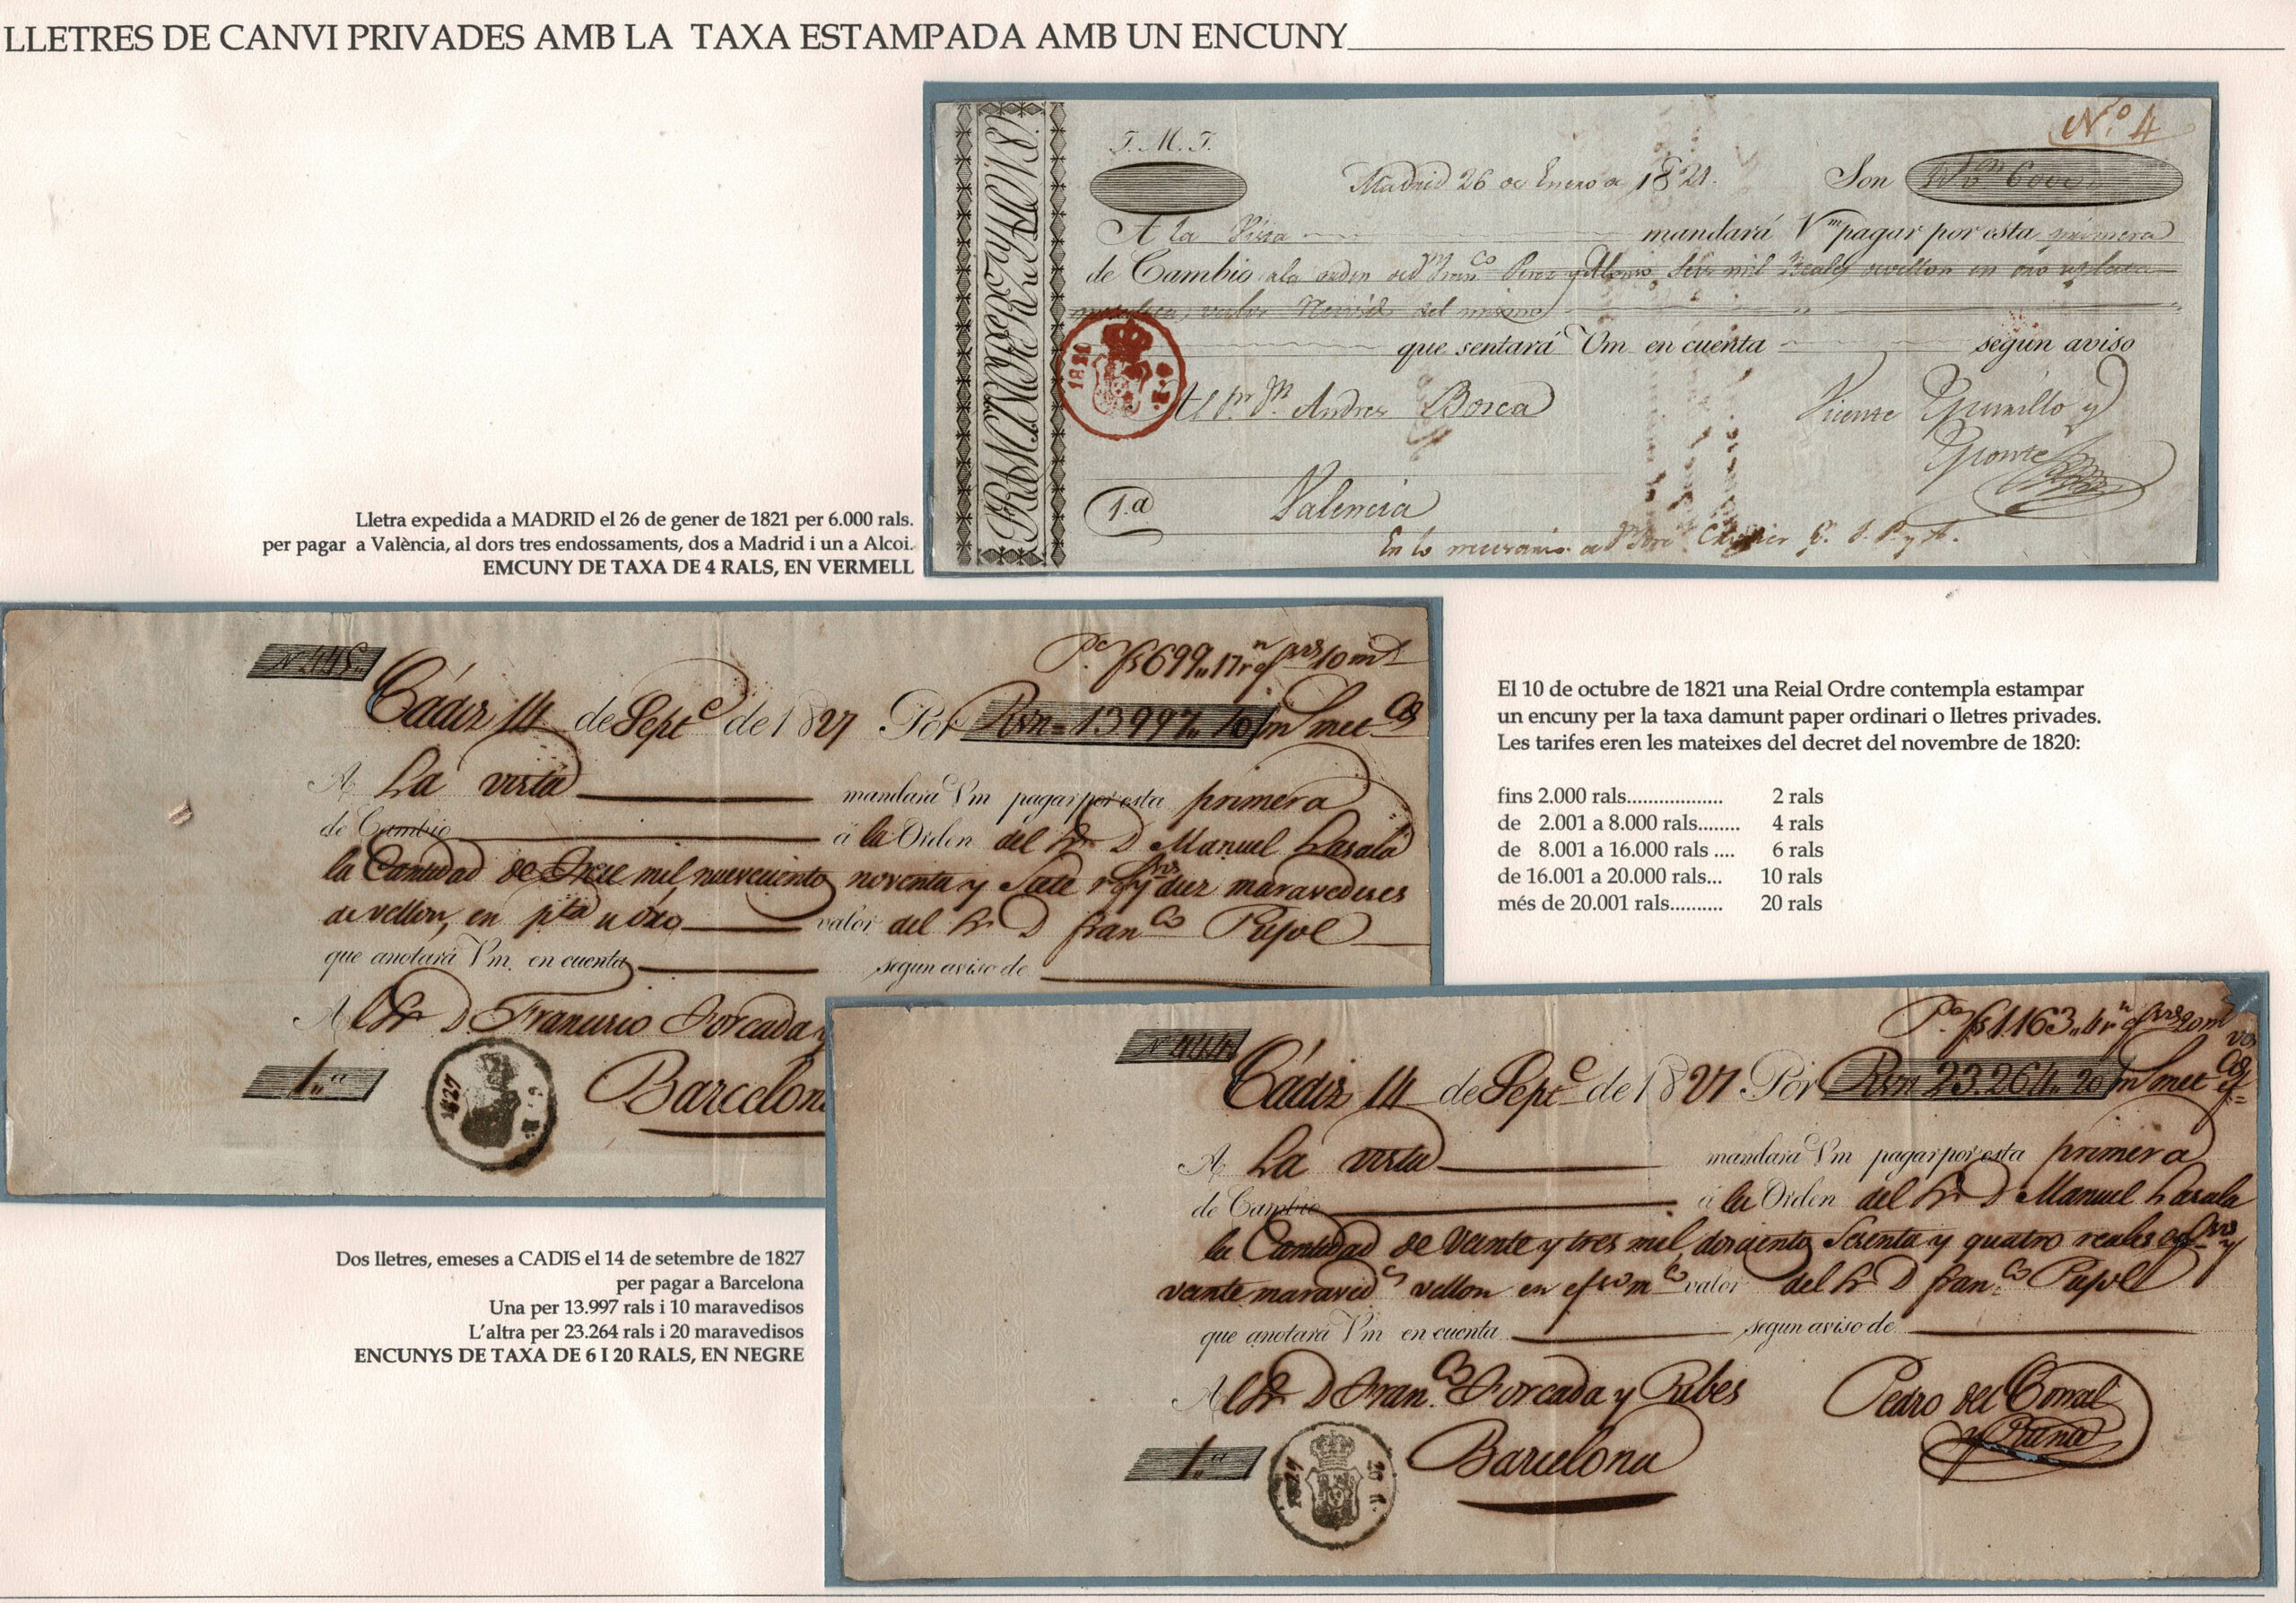 LLETRES DE CANVI PRIVADES AMB LA TAXA ESTAMPADA AMB UN ENCUNY
Nº 4
Madrid 26 de Enero de 1821. Son
A la Vista mandará Vm pagar por esta primera
de Cambio a la orden de Dn Franco Perez y Alonso, Seis mil Reales de vellon en oro
valor del mismo
que sentará Vm en cuenta según aviso
1821 4 R.
Al Sr Dn Andres Borea
Vicente
1.a Valencia
Lletra expedida a MADRID el 26 de gener de 1821 per 6.000 rals.
per pagar a València, al dors tres endossaments, dos a Madrid i un a Alcoi.
EMCUNY DE TAXA DE 4 RALS, EN VERMELL
Nº 445
Cádiz 14 de Septe de 1827 Por Rvn = 13997,, 10 m
A La vista mandará Vm pagar por esta primera
de Cambio á la Orden del Sr D Manuel Lasala
la Cantidad de Trece mil nuevecientos noventa y Siete rs y diez maravedises
de vellon, en pta u oro valor del Sr D Franco Pujol
que anotará Vm. en cuenta segun aviso de
Al Sr D Francisco Forcada y
1,,a 1827 6 R. Barcelona
El 10 de octubre de 1821 una Reial Ordre contempla estampar
un encuny per la taxa damunt paper ordinari o lletres privades.
Les tarifes eren les mateixes del decret del novembre de 1820:
fins 2.000 rals.................. 2 rals
de 2.001 a 8.000 rals........ 4 rals
de 8.001 a 16.000 rals .... 6 rals
de 16.001 a 20.000 rals... 10 rals
més de 20.001 rals.......... 20 rals
Nº 444
Cádiz 14 de Septe de 1827 Por Rvn 23.264,, 20 m
A La vista mandará Vm pagar por esta primera
de Cambio á la Orden del Sr D Manuel Lasala
la Cantidad de Veinte y tres mil, doscientos Sesenta y quatro reales
veinte maraveds vellon en valor del Sr D Franco Pujol
que anotará Vm en cuenta segun aviso de
Al Sr D Franco Forcada y Ribes Pedro del Corral
1,,a 1827 20 R. Barcelona
Dos lletres, emeses a CADIS el 14 de setembre de 1827
per pagar a Barcelona
Una per 13.997 rals i 10 maravedisos
L'altra per 23.264 rals i 20 maravedisos
ENCUNYS DE TAXA DE 6 I 20 RALS, EN NEGRE